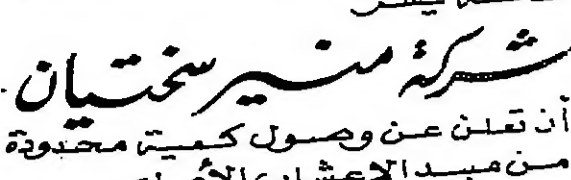 يسر
شركة منير سختيان
أن تعلن عن وصول كمية محدودة
من مبيد الاعشاب